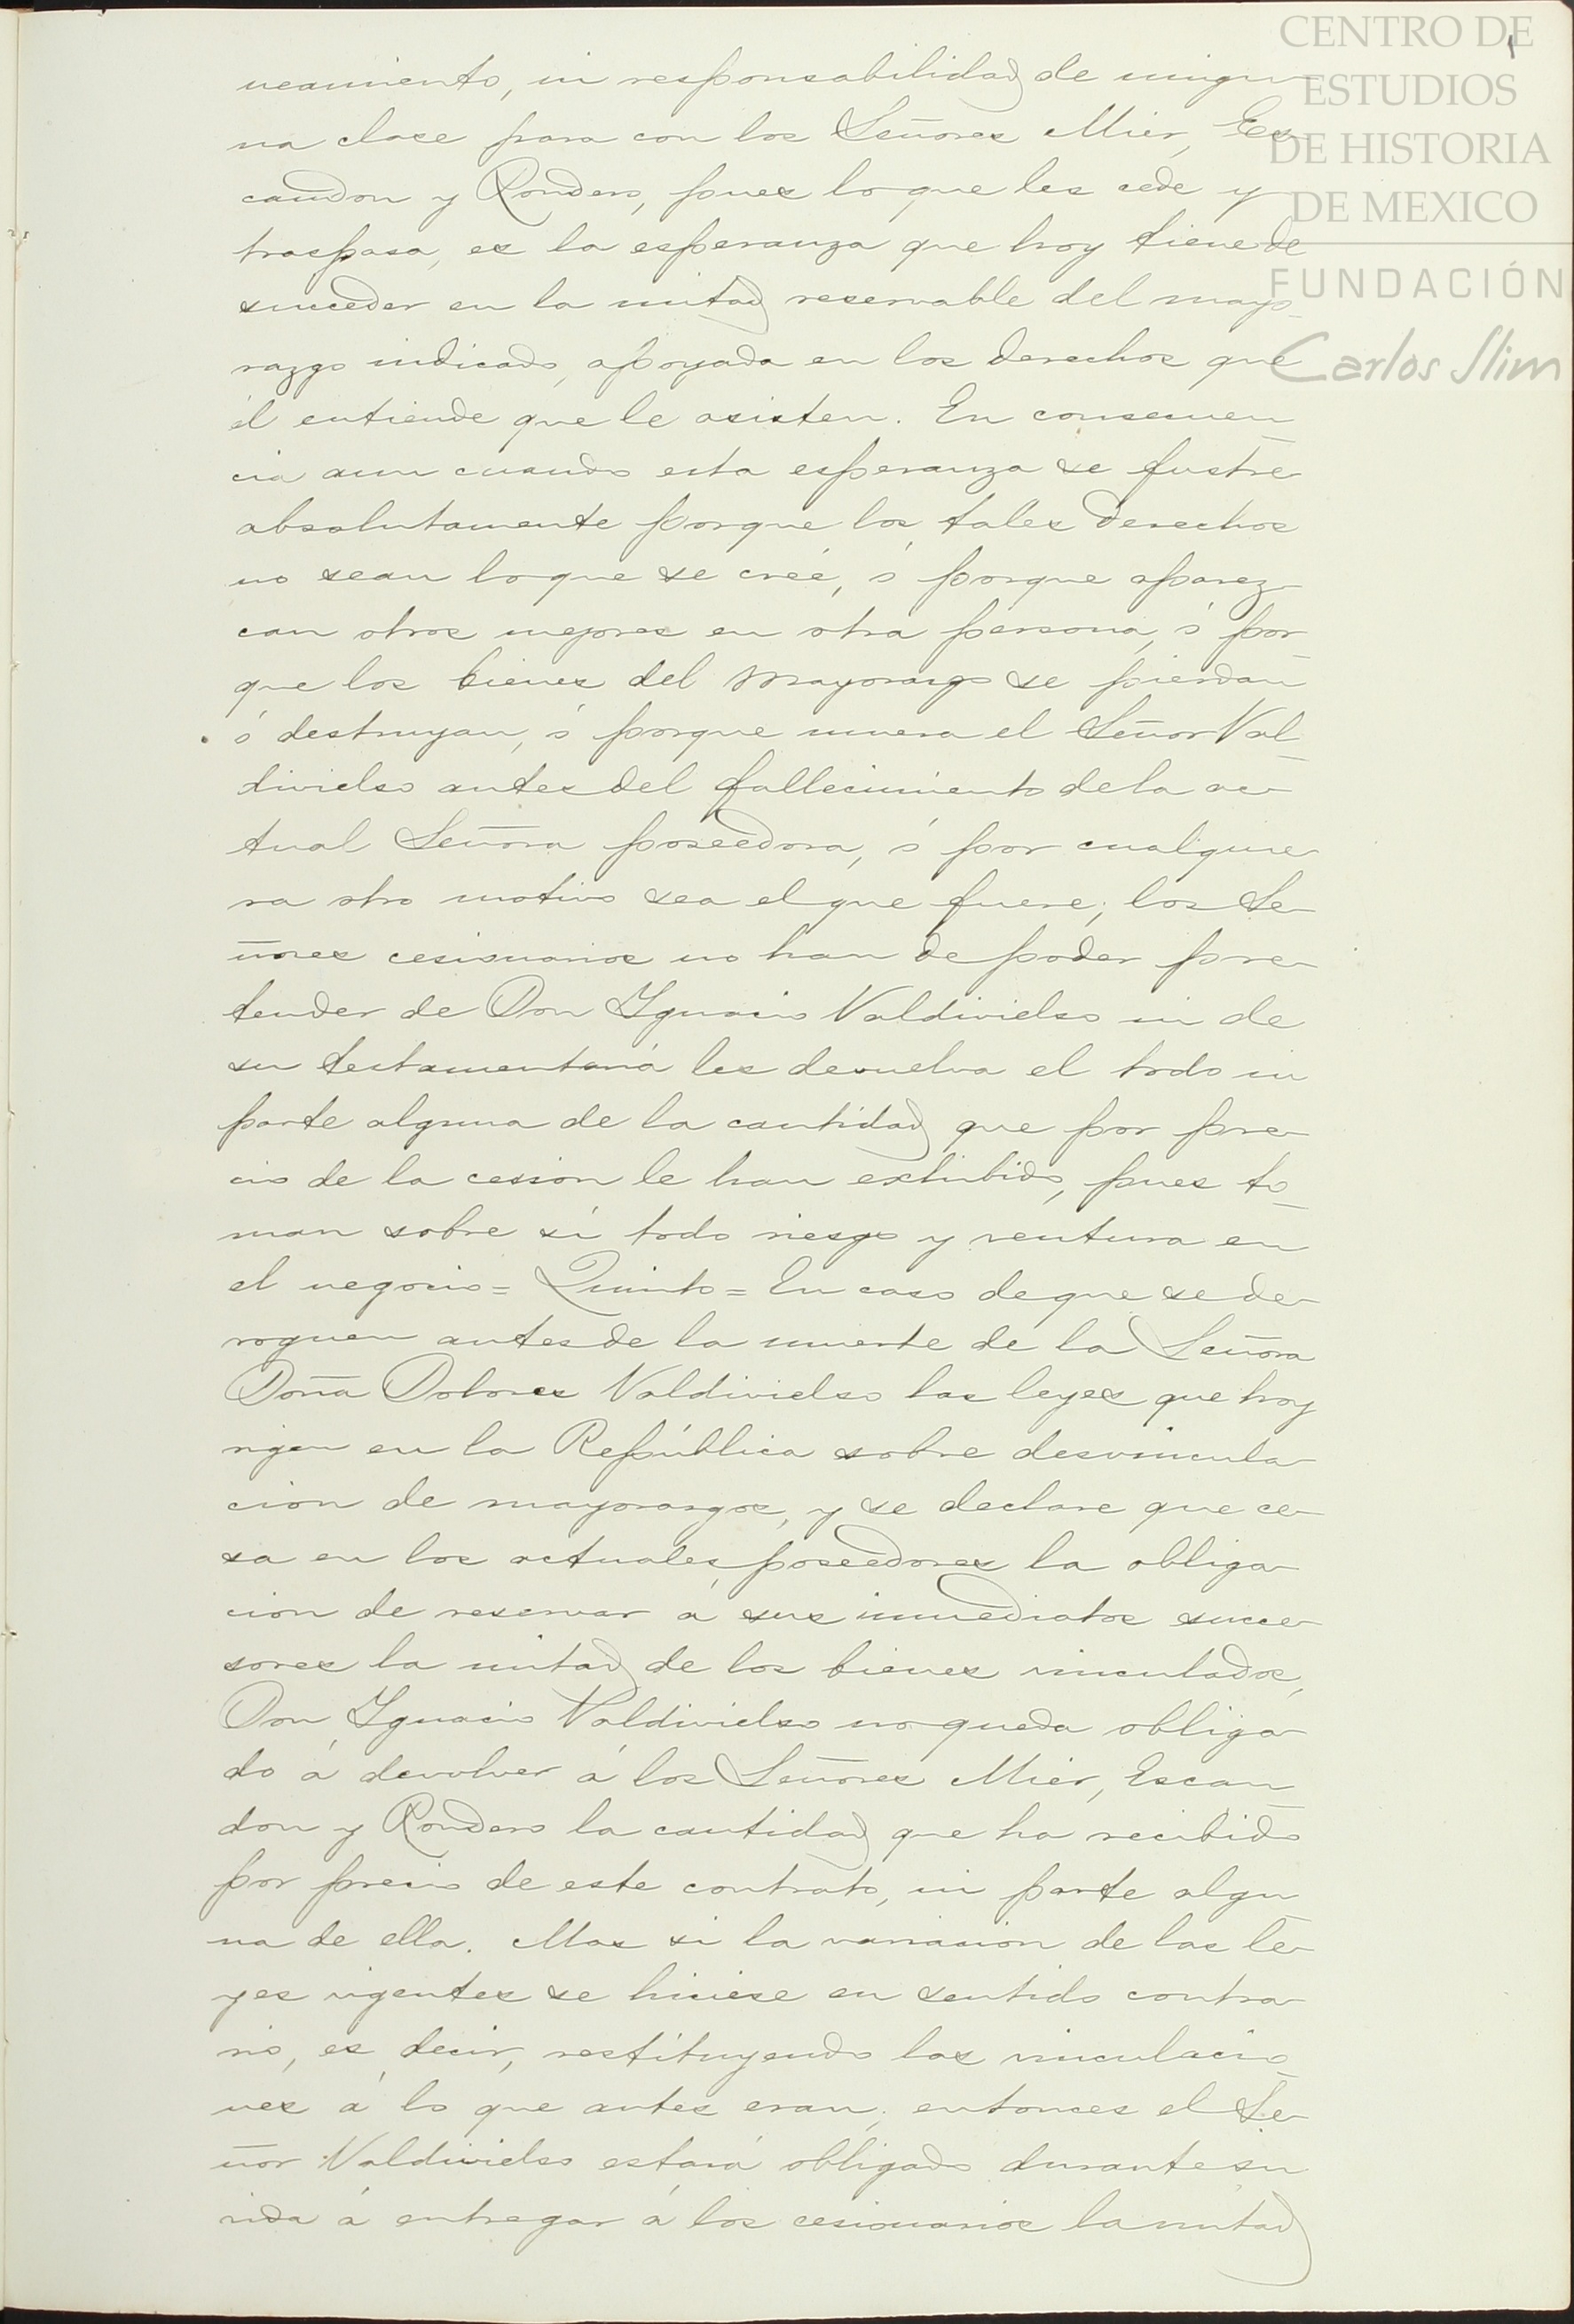 neamiento, ni responsabilidad de ningu
na clase para con los Señores Mier, Es
candon y Rondero, pues lo que les cede y
traspasa, es la esperanza que hoy tiene de
succeder en la mitad reservable del mayo
razgo indicado, apoyada en los derechos que
él entiende que le asisten. En consecuen
cia aun cuando esta esperanza se fustre
absolutamente porque los tales derechos
no sean lo que se creé, ó porque aparez
can otros mejores en otra persona, ó por
que los bienes del Mayorazgo se pierdan
ó destruyan, ó porque muera el Señor Val
divielso antes del fallecimiento de la ac
tual Señora poseedora, ó por cualquie
ra otro motivo sea el que fuere; los Se
ñores cesionarios no han de poder pre
tender de Don Ygnacio Valdivielso ni de
su testamentaría les devuelva el todo ni
parte alguna de la cantidad que por pre
cio de la cesion le han exhibido, pues to
man sobre sí todo riesgo y ventura en
el negocio = Quinto = En caso de que se de
roguen antes de la muerte de la Señora
Doña Dolores Valdivielso las leyes que hoy
rigen en la República sobre desvincula
cion de mayorazgos, y se declare que ce
sa en los actuales poseedores la obliga
cion de reservar á sus inmediatos succe
sores la mitad de los bienes vinculados,
Don Ygnacio Valdivielso no queda obliga
do á devolver á los Señores Mier, Escan
don y Rondero la cantidad que ha recibido
por precio de este contrato, ni parte algu
na de ella. Mas si la variacion de las le
yes vigentes se hiciese en sentido contra
rio, es decir, restituyendo las vinculacio
nes á lo que antes eran; entonces el Se
ñor Valdivielso estará obligado durante su
vida á entregar á los cesionarios la mitad
CENTRO DE
ESTUDIOS
DE HISTORIA
DE MEXICO
FUNDACIÓN
Carlos Slim